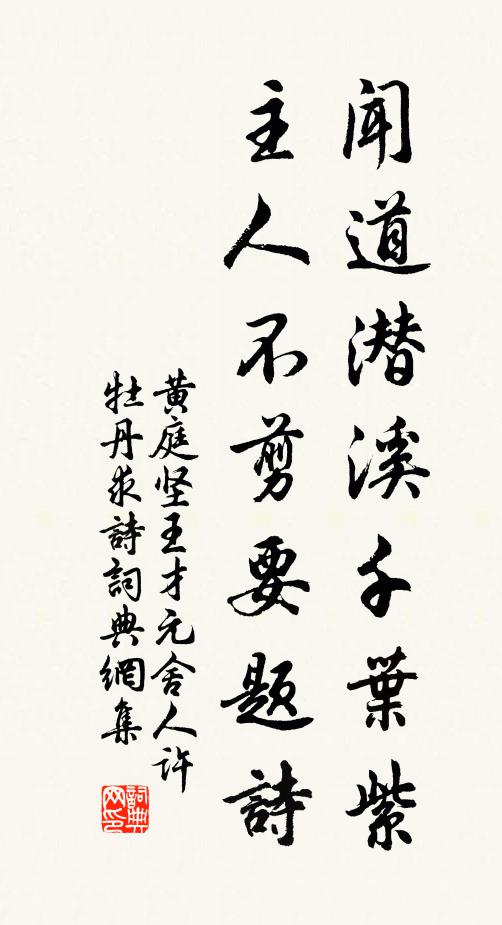 闻道潜溪千葉紫
主人不剪要题詩
黄庭坚王才元舍人许
牡丹求詩詞典網集
詞典网印